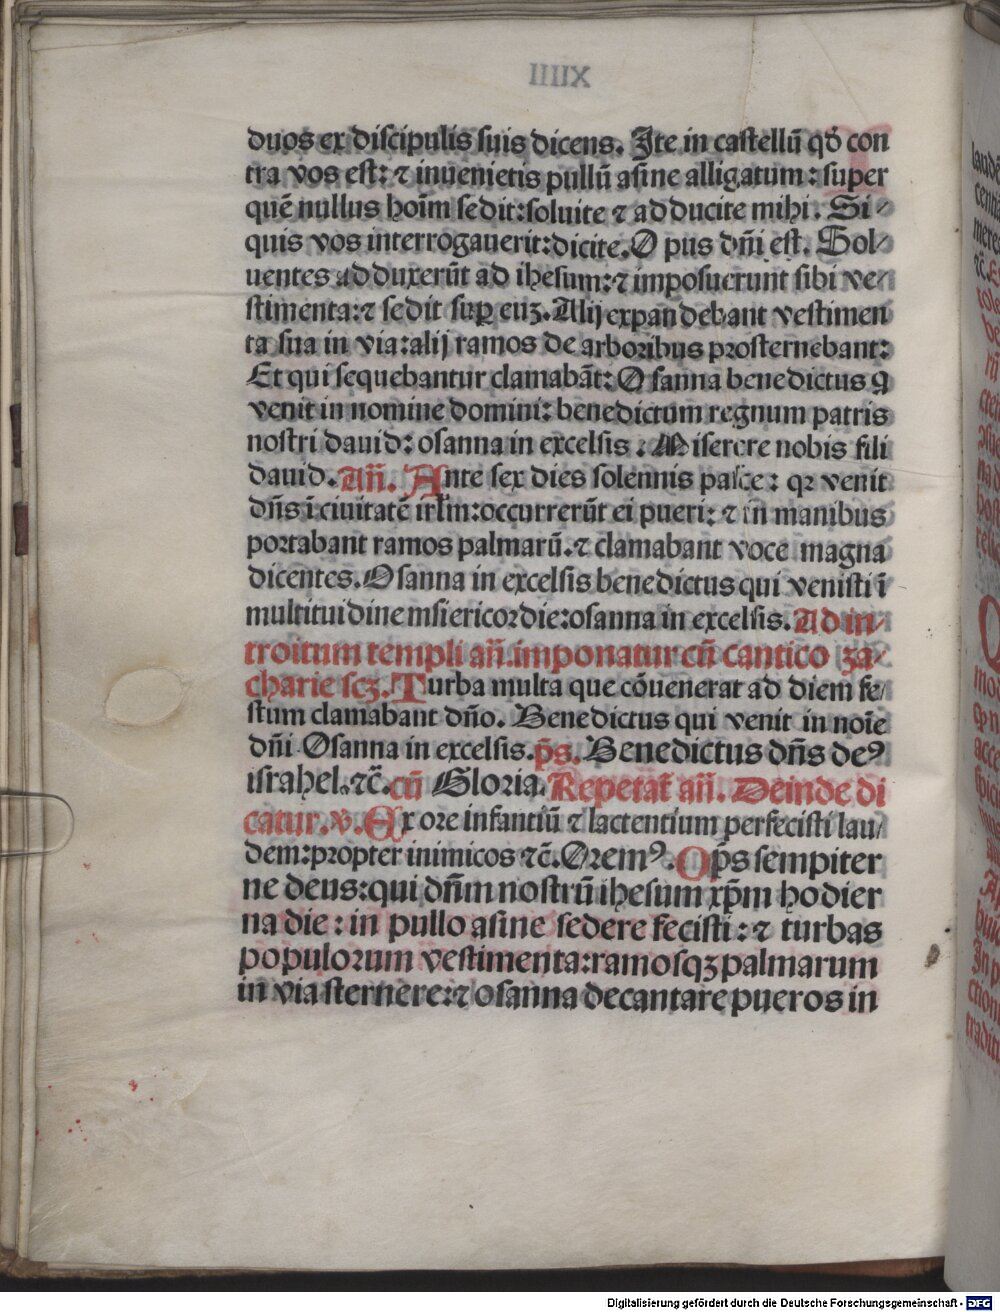 duos ex discipulis suis dicens. Ite in castellū qđ con
tra vos est: ⁊ inuenietis pullū asine alligatum: super
quē nullus hoīm sedit:soluite ⁊ adducite mihi. Si⸗
quis vos interrogauerit:dicite.O pus dn̄i est. Sol⸗
uentes adduxerūt ad ihesum:⁊ imposuerunt sibi ve⸗
stimenta:⁊ sedit suꝑ euʒ.Alij expandebant vestimen
ta sua in via:alij ramos de arboribus prosternebant:
Et qui sequebantur clamabāt:O sanna benedictus ꝗ
venit in nomine domini: benedictum regnum patris
nostri dauid: osanna in excelsis : Miserere nobis fili
dauid.An̄. Ante sex dies solennis pasce: qꝛ venit
dn̄s ī ciuitatē irl̄m:occurrerūt ei pueri: ⁊ in manibus
portabant ramos palmarū.⁊ clamabant voce magna
dicentes.Osanna in excelsis benedictus qui venisti ī
multituidine msiericordie:osanna in excelsis.Ad in⸗
troitum templi an̄.imponatur cū cantico za⸗
charie scʒ.Turba multa que cōuenerat ad diem fe⸗
stum clamabant dn̄o. Benedictus qui venit in noīe
dn̄i Osanna in excelsis.p̄s. Benedictus dn̄s deꝰ
israhel.⁊c̄.cū Gloria.Repetat̄ an̄. Deinde di
catur.v.Ex ore infantiū ⁊ lactentium perfecisti lau⸗
dem:propter inimicos ⁊c̄.Oremꝰ.Op̄s sempiter
ne deus:qui dn̄m nostrū ihesum xp̄m hodier
na die : in pullo asine sedere fecisti : ⁊ turbas
populorum vestimenta:ramosqʒ palmarum
in via sternere:⁊ osanna decantare pueros in
Digitalisierung gefördert durch die Deutsche Forschungsgemeinschaft - DFG